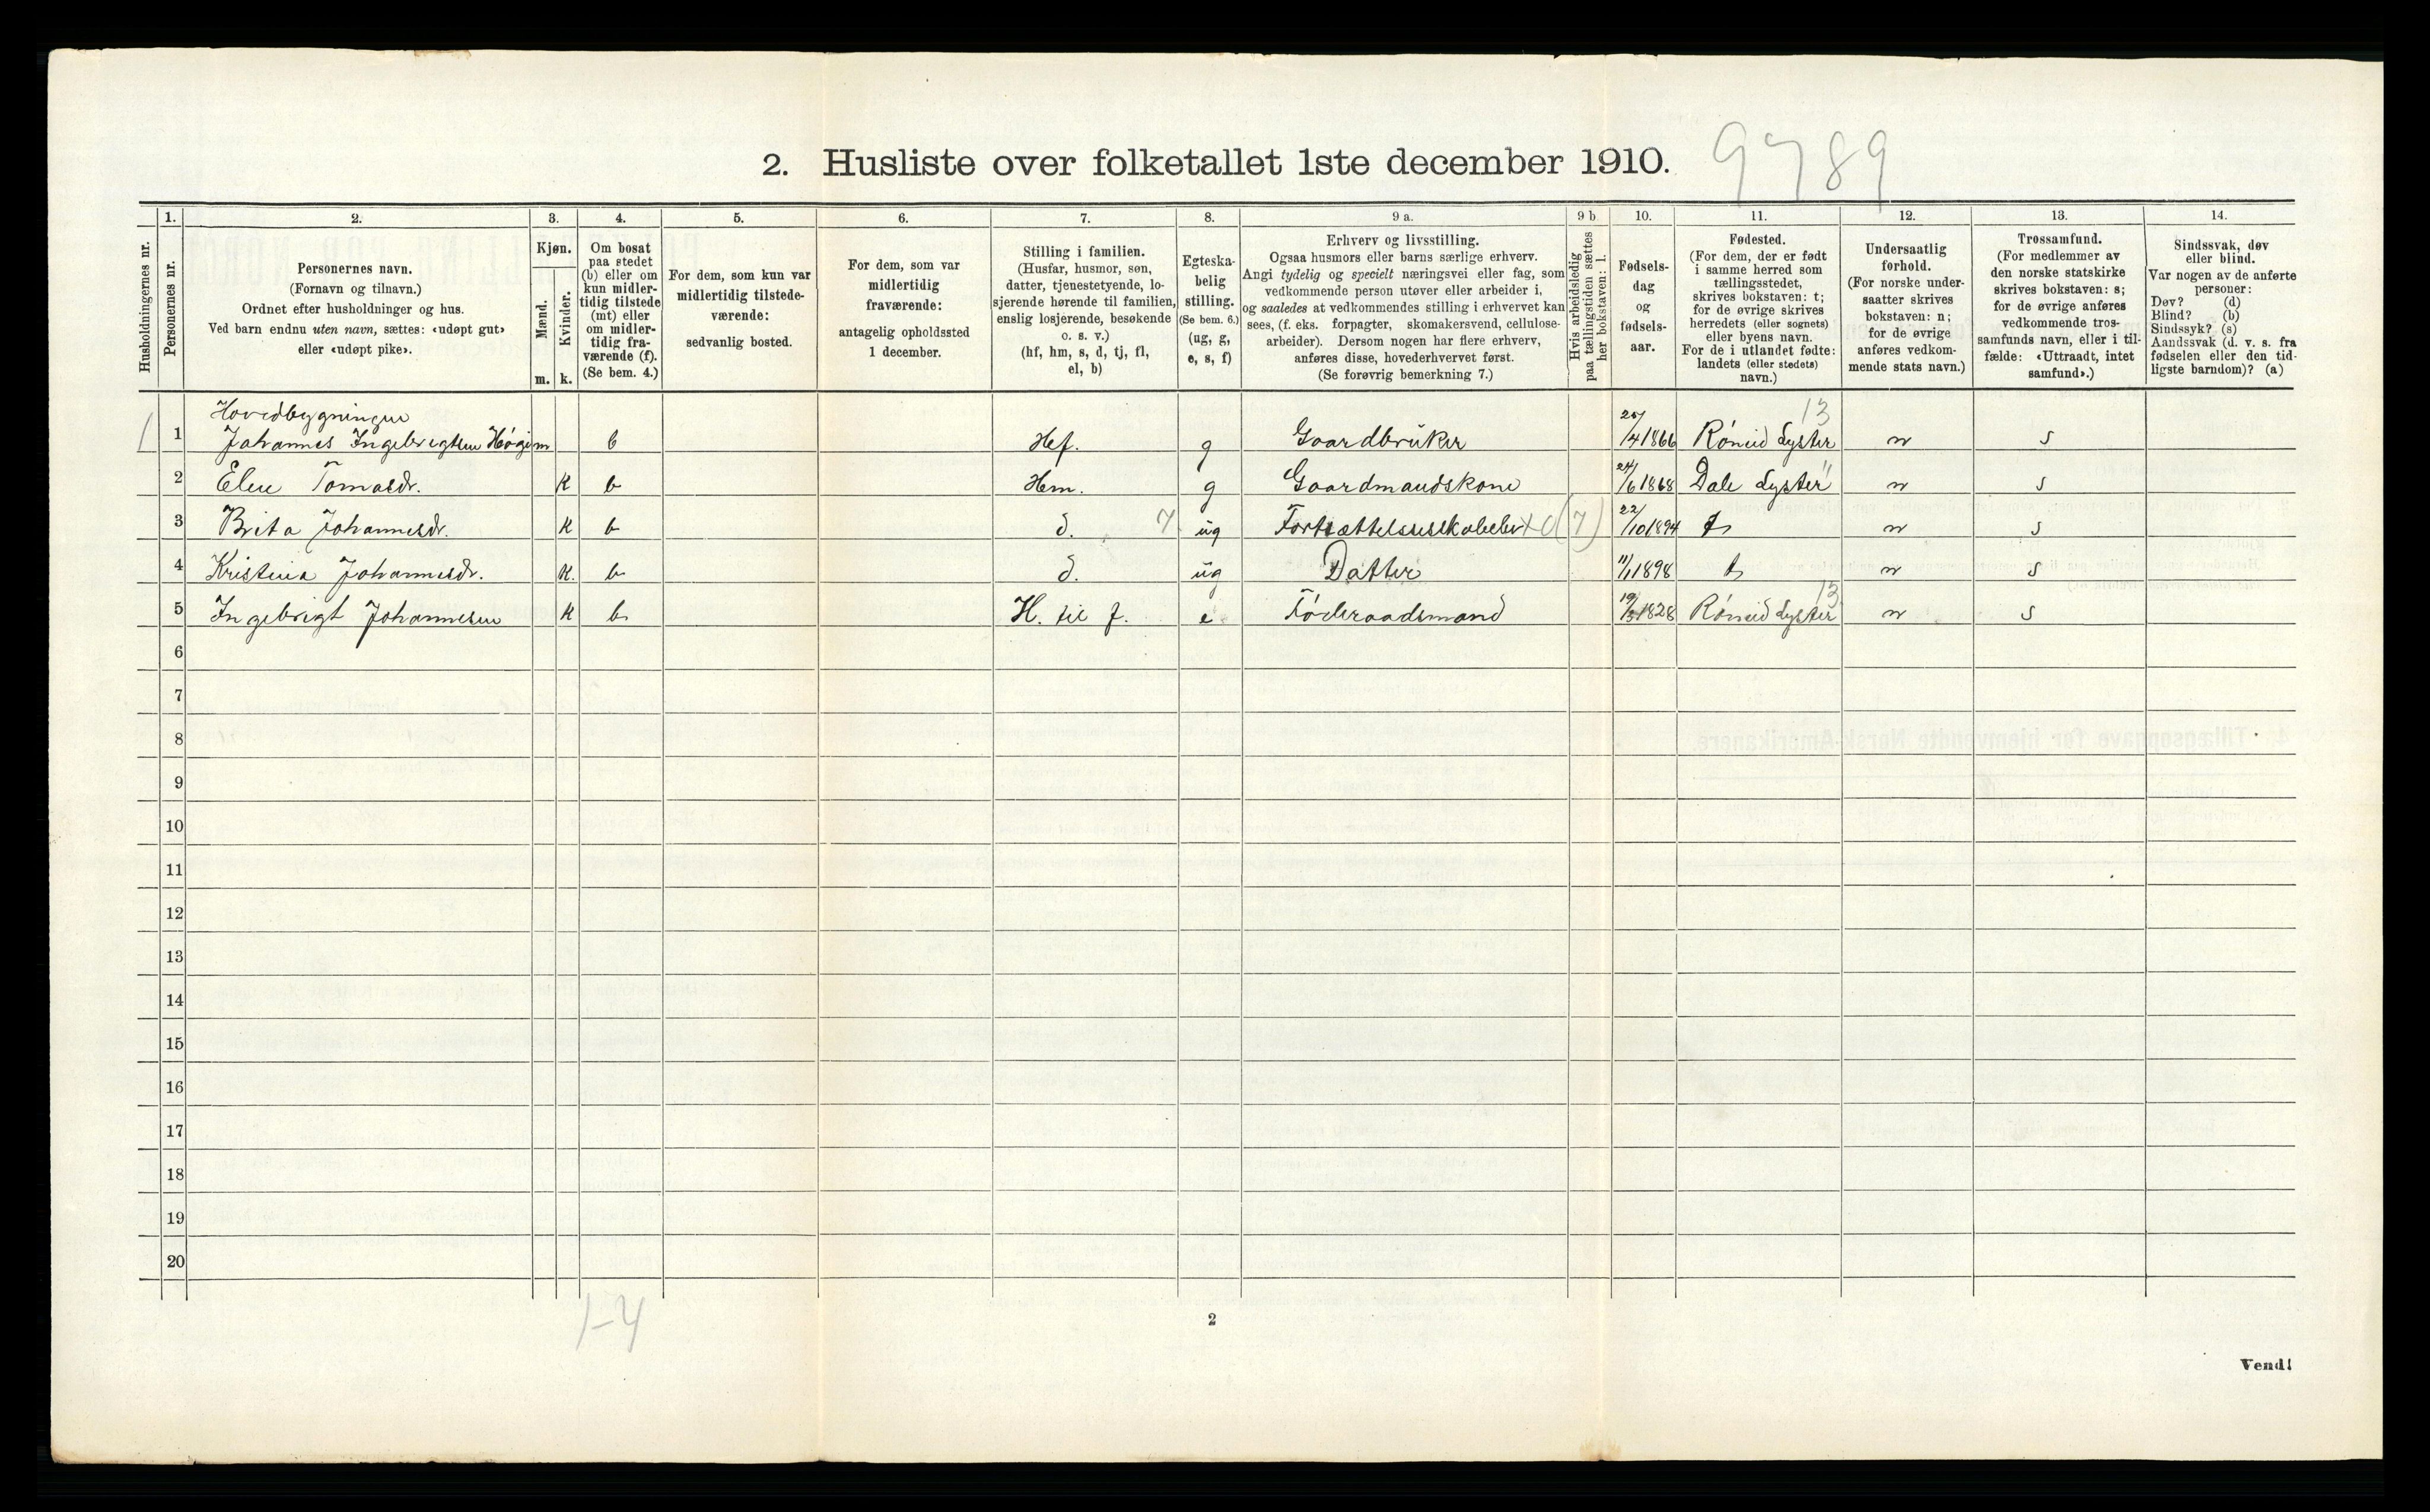 2. Husliste over folketallet 1ste december 1910. 9789
Husholdningernes nr.
1.
Personernes nr.
2.
Personernes navn.
(Fornavn og tilnavn.)
Ordnet efter husholdninger og hus.
Ved barn endnu uten navn, sættes: «udøpt gut»
eller «udøpt pike».
3.
Kjøn.
Mænd.
Kvinder.
m. k.
4.
Om bosat
paa stedet
(b) eller om
kun midler-
tidig tilstede
(mt) eller
om midler-
tidig fra-
værende (f).
(Se bem. 4.)
5.
For dem, som kun var
midlertidig tilstede-
værende:
sedvanlig bosted.
6.
For dem, som var
midlertidig
fraværende:
antagelig opholdssted
1 december.
7.
Stilling i familien.
(Husfar, husmor, søn,
datter, tjenestetyende, lo-
sjerende hørende til familien,
enslig losjerende, besøkende
o. s. v.)
(hf, hm, s, d, tj, fl,
el, b)
8.
Egteska-
belig
stilling.
(Se bem. 6.)
(ug, g,
e, s, f)
9 a.
Erhverv og livsstilling.
Ogsaa husmors eller barns særlige erhverv.
Angi tydelig og specielt næringsvei eller fag, som
vedkommende person utøver eller arbeider i,
og saaledes at vedkommendes stilling i erhvervet kan
sees, (f. eks. forpagter, skomakersvend, cellulose-
arbeider). Dersom nogen har flere erhverv,
anføres disse, hovederhvervet først.
(Se forøvrig bemerkning 7.)
9 b
Hvis arbeidsledig
paa tællingstiden sættes
her bokstaven: l.
10.
Fødsels-
dag
og
fødsels-
aar.
11.
Fødested.
(For dem, der er født
i samme herred som
tællingsstedet,
skrives bokstaven: t;
for de øvrige skrives
herredets (eller sognets)
eller byens navn.
For de i utlandet fødte:
landets (eller stedets)
navn.)
12.
Undersaatlig
forhold.
(For norske under-
saatter skrives
bokstaven: n;
for de øvrige
anføres vedkom-
mende stats navn.)
13.
Trossamfund.
(For medlemmer av
den norske statskirke
skrives bokstaven: s;
for de øvrige anføres
vedkommende tros-
samfunds navn, eller i til-
fælde: «Uttraadt, intet
samfund».)
14.
Sindssvak, døv
eller blind.
Var nogen av de anførte
personer:
Døv? (d)
Blind? (b)
Sindssyk? (s)
Aandssvak (d. v. s. fra
fødselen eller den tid-
ligste barndom)? (a)
Hovedbygningen 13
1 1 Johannes Ingebrigtsen Høgi m b Hef. g Gaardbruker 25/4 1866 Rôneid Lyster n s
2 Elen Tomasdr. K b Hem. g Gaardmandskone 24/6 1868 Dale Lyster n s
3 Brita Johannesdr. K b d. 7 ug (7) 22/10 1894 t n s
4 Kristina Johannesdr. K. b d. ug Datter 11/1 1898 t n s
13
5 Ingebrigt Johannesen K b H. til f. e Føderaadsmand 1828 Rôneid Lyster n s
6
7
8
9
10
11
12
13
14
15
16
17
18
19
20
1-4
2
Vend!